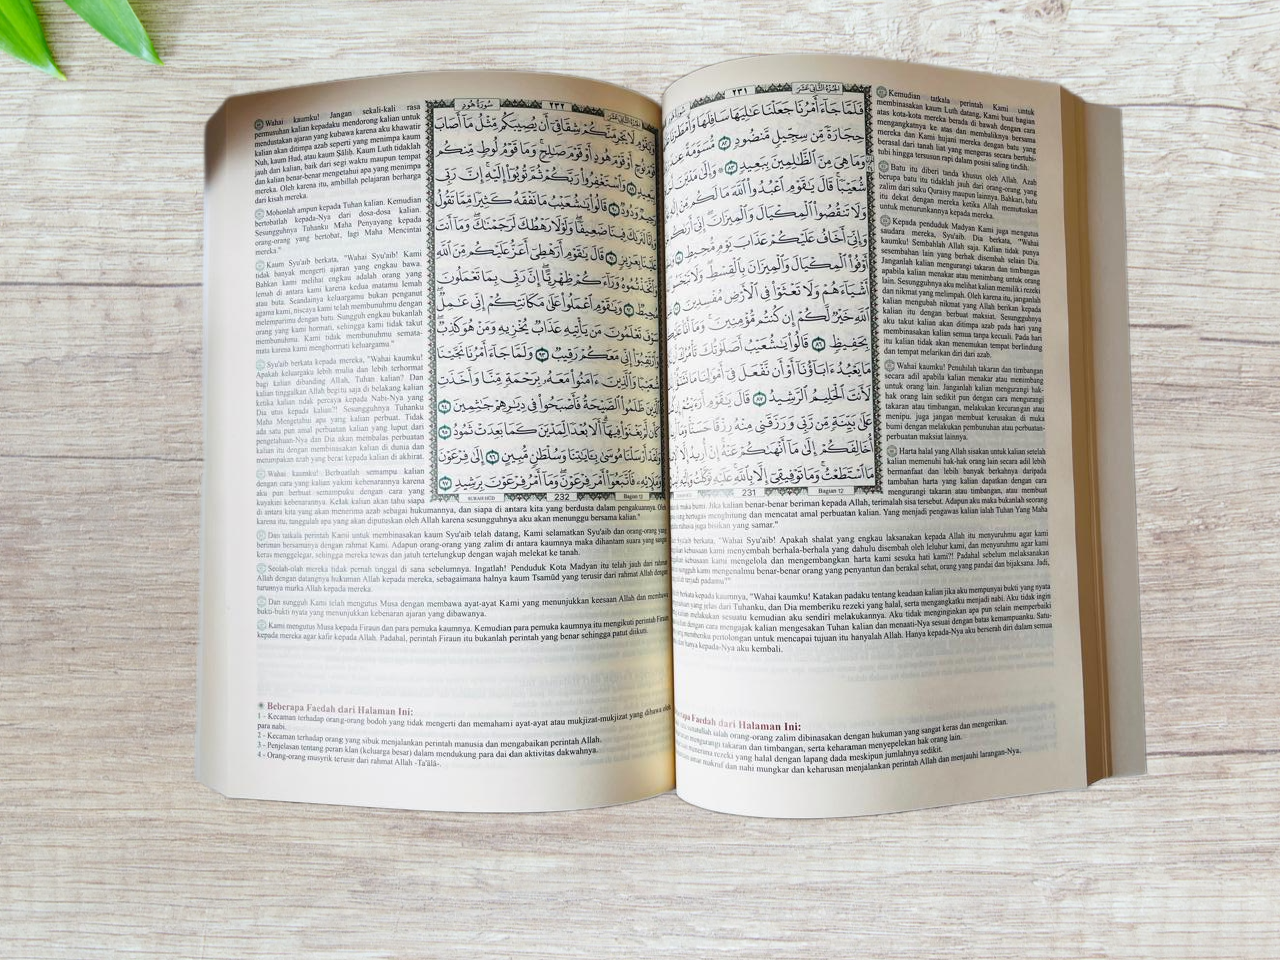 سُورَةُ هُودٍ
٢٣٢
وَيَٰقَوْمِ لَا يَجْرِمَنَّكُمْ شِقَاقِىٓ أَن يُصِيبَكُم مِّثْلُ مَآ أَصَابَ
قَوْمَ نُوحٍ أَوْ قَوْمَ هُودٍ أَوْ قَوْمَ صَٰلِحٍ ۚ وَمَا قَوْمُ لُوطٍ مِّنكُم
وَٱسْتَغْفِرُوا۟ رَبَّكُمْ ثُمَّ تُوبُوٓا۟ إِلَيْهِ ۚ إِنَّ رَبِّى
قَالُوا۟ يَٰشُعَيْبُ مَا نَفْقَهُ كَثِيرًا مِّمَّا تَقُولُ
لَنَرَىٰكَ فِينَا ضَعِيفًا ۖ وَلَوْلَا رَهْطُكَ لَرَجَمْنَٰكَ ۖ وَمَآ أَنتَ
عَلَيْنَا بِعَزِيزٍ ٩١ قَالَ يَٰقَوْمِ أَرَهْطِىٓ أَعَزُّ عَلَيْكُم مِّنَ ٱللَّهِ
وَٱتَّخَذْتُمُوهُ وَرَآءَكُمْ ظِهْرِيًّا ۖ إِنَّ رَبِّى بِمَا تَعْمَلُونَ
مُحِيطٌ ٩٢ وَيَٰقَوْمِ ٱعْمَلُوا۟ عَلَىٰ مَكَانَتِكُمْ إِنِّى عَٰمِلٌ ۖ
سَوْفَ تَعْلَمُونَ مَن يَأْتِيهِ عَذَابٌ يُخْزِيهِ وَمَنْ هُوَ كَٰذِبٌ ۖ
وَٱرْتَقِبُوٓا۟ إِنِّى مَعَكُمْ رَقِيبٌ ٩٣ وَلَمَّا جَآءَ أَمْرُنَا نَجَّيْنَا
شُعَيْبًا وَٱلَّذِينَ ءَامَنُوا۟ مَعَهُۥ بِرَحْمَةٍ مِّنَّا وَأَخَذَتِ
ٱلَّذِينَ ظَلَمُوا۟ ٱلصَّيْحَةُ فَأَصْبَحُوا۟ فِى دِيَٰرِهِمْ جَٰثِمِينَ ٩٤
كَأَن لَّمْ يَغْنَوْا۟ فِيهَآ ۗ أَلَا بُعْدًا لِّمَدْيَنَ كَمَا بَعِدَتْ ثَمُودُ ٩٥
وَلَقَدْ أَرْسَلْنَا مُوسَىٰ بِـَٔايَٰتِنَا وَسُلْطَٰنٍ مُّبِينٍ ٩٦ إِلَىٰ فِرْعَوْنَ
وَمَلَإِي۟هِۦ فَٱتَّبَعُوٓا۟ أَمْرَ فِرْعَوْنَ ۖ وَمَآ أَمْرُ فِرْعَوْنَ بِرَشِيدٍ ٩٧
SURAH HŪD 232 Bagian 12
Wahai kaumku! Jangan sekali-kali rasa
permusuhan kalian kepadaku mendorong kalian untuk
mendustakan ajaran yang kubawa karena aku khawatir
kalian akan ditimpa azab seperti yang menimpa kaum
Nuh, kaum Hud, atau kaum Ṣāliḥ. Kaum Luth tidaklah
jauh dari kalian, baik dari segi waktu maupun tempat
dan kalian benar-benar mengetahui apa yang menimpa
mereka. Oleh karena itu, ambillah pelajaran berharga
dari kisah mereka.
Mohonlah ampun kepada Tuhan kalian. Kemudian
bertobatlah kepada-Nya dari dosa-dosa kalian.
Sesungguhnya Tuhanku Maha Penyayang kepada
orang-orang yang bertobat, lagi Maha Mencintai
mereka."
Kaum Syu'aib berkata, "Wahai Syu'aib! Kami
tidak banyak mengerti ajaran yang engkau bawa.
Bahkan kami melihat engkau adalah orang yang
lemah di antara kami karena kedua matamu lemah
atau buta. Seandainya keluargamu bukan penganut
agama kami, niscaya kami telah membunuhmu dengan
melemparimu dengan batu. Sungguh engkau bukanlah
orang yang kami hormati, sehingga kami tidak takut
membunuhmu. Kami tidak membunuhmu semata-
mata karena kami menghormati keluargamu."
Syu'aib berkata kepada mereka, "Wahai kaumku!
Apakah keluargaku lebih mulia dan lebih terhormat
bagi kalian dibanding Allah, Tuhan kalian? Dan
kalian tinggalkan Allah begitu saja di belakang kalian
ketika kalian tidak percaya kepada Nabi-Nya yang
Dia utus kepada kalian?! Sesungguhnya Tuhanku
Maha Mengetahui apa yang kalian perbuat. Tidak
ada satu pun amal perbuatan kalian yang luput dari
pengetahuan-Nya dan Dia akan membalas perbuatan
kalian dengan membinasakan kalian di dunia dan
menimpakan azab yang berat kepada kalian di akhirat.
Wahai kaumku! Berbuatlah semampu kalian
dengan cara yang kalian yakini kebenarannya karena
aku pun berbuat semampuku dengan cara yang
kuyakini kebenarannya. Kelak kalian akan tahu siapa
di antara kita yang akan menerima azab sebagai hukumannya, dan siapa di antara kita yang berdusta dalam pengakuannya. Oleh
karena itu, tunggulah apa yang akan diputuskan oleh Allah karena sesungguhnya aku akan menunggu bersama kalian."
Dan tatkala perintah Kami untuk membinasakan kaum Syu'aib telah datang, Kami selamatkan Syu'aib dan orang-orang yang
beriman bersamanya dengan rahmat Kami. Adapun orang-orang yang zalim di antara kaumnya maka dihantam suara yang sangat
keras menggelegar, sehingga mereka tewas dan jatuh tertelungkup dengan wajah melekat ke tanah.
Seolah-olah mereka tidak pernah tinggal di sana sebelumnya. Ingatlah! Penduduk Kota Madyan itu telah jauh dari rahmat
Allah dengan datangnya hukuman Allah kepada mereka, sebagaimana halnya kaum Tsamūd yang terusir dari rahmat Allah dengan
turunnya murka Allah kepada mereka.
Dan sungguh Kami telah mengutus Musa dengan membawa ayat-ayat Kami yang menunjukkan keesaan Allah dan membawa
bukti-bukti nyata yang menunjukkan kebenaran ajaran yang dibawanya.
Kami mengutus Musa kepada Firaun dan para pemuka kaumnya. Kemudian para pemuka kaumnya itu mengikuti perintah Firaun
kepada mereka agar kafir kepada Allah. Padahal, perintah Firaun itu bukanlah perintah yang benar sehingga patut diikuti.
Beberapa Faedah dari Halaman Ini:
1 - Kecaman terhadap orang-orang bodoh yang tidak mengerti dan memahami ayat-ayat atau mukjizat-mukjizat yang dibawa oleh
para nabi.
2 - Kecaman terhadap orang yang sibuk menjalankan perintah manusia dan mengabaikan perintah Allah.
3 - Penjelasan tentang peran klan (keluarga besar) dalam mendukung para dai dan aktivitas dakwahnya.
4 - Orang-orang musyrik terusir dari rahmat Allah -Ta'ālā-.
٢٣١
الجُزْءُ الثَّانِي عَشَرَ
فَلَمَّا جَآءَ أَمْرُنَا جَعَلْنَا عَٰلِيَهَا سَافِلَهَا وَأَمْطَرْنَا
حِجَارَةً مِّن سِجِّيلٍ مَّنضُودٍ ٨٢ مُّسَوَّمَةً عِندَ
وَمَا هِىَ مِنَ ٱلظَّٰلِمِينَ بِبَعِيدٍ ٨٣ وَإِلَىٰ مَدْيَنَ
شُعَيْبًا ۚ قَالَ يَٰقَوْمِ ٱعْبُدُوا۟ ٱللَّهَ مَا لَكُم مِّنْ إِلَٰهٍ
وَلَا تَنقُصُوا۟ ٱلْمِكْيَالَ وَٱلْمِيزَانَ ۚ إِنِّىٓ أَرَىٰكُم
وَإِنِّىٓ أَخَافُ عَلَيْكُمْ عَذَابَ يَوْمٍ مُّحِيطٍ
أَوْفُوا۟ ٱلْمِكْيَالَ وَٱلْمِيزَانَ بِٱلْقِسْطِ ۖ وَلَا تَبْخَسُوا۟
أَشْيَآءَهُمْ وَلَا تَعْثَوْا۟ فِى ٱلْأَرْضِ مُفْسِدِينَ
ٱللَّهِ خَيْرٌ لَّكُمْ إِن كُنتُم مُّؤْمِنِينَ ۚ وَمَآ أَنَا۠
بِحَفِيظٍ ٨٦ قَالُوا۟ يَٰشُعَيْبُ أَصَلَوٰتُكَ تَأْمُرُكَ
مَا يَعْبُدُ ءَابَآؤُنَآ أَوْ أَن نَّفْعَلَ فِىٓ أَمْوَٰلِنَا مَا نَشَٰٓؤُا۟
لَأَنتَ ٱلْحَلِيمُ ٱلرَّشِيدُ ٨٧ قَالَ يَٰقَوْمِ أَرَءَيْتُمْ
عَلَىٰ بَيِّنَةٍ مِّن رَّبِّى وَرَزَقَنِى مِنْهُ رِزْقًا حَسَنًا ۚ وَمَآ
أُخَالِفَكُمْ إِلَىٰ مَآ أَنْهَىٰكُمْ عَنْهُ ۚ إِنْ أُرِيدُ إِلَّا
مَا ٱسْتَطَعْتُ ۚ وَمَا تَوْفِيقِىٓ إِلَّا بِٱللَّهِ ۚ عَلَيْهِ تَوَكَّلْتُ
231 Bagian 12
Kemudian tatkala perintah Kami untuk
membinasakan kaum Luth datang, Kami buat bagian
atas kota-kota mereka berada di bawah dengan cara
mengangkatnya ke atas dan membaliknya bersama
mereka dan Kami hujani mereka dengan batu yang
berasal dari tanah liat yang mengeras secara bertubi-
tubi hingga tersusun rapi dalam posisi saling tindih.
Batu itu diberi tanda khusus oleh Allah. Azab
berupa batu itu tidaklah jauh dari orang-orang yang
zalim dari suku Quraisy maupun lainnya. Bahkan, batu
itu dekat dengan mereka ketika Allah memutuskan
untuk menurunkannya kepada mereka.
Kepada penduduk Madyan Kami juga mengutus
saudara mereka, Syu'aib. Dia berkata, "Wahai
kaumku! Sembahlah Allah saja. Kalian tidak punya
sesembahan lain yang berhak disembah selain Dia.
Janganlah kalian mengurangi takaran dan timbangan
apabila kalian menakar atau menimbang untuk orang
lain. Sesungguhnya aku melihat kalian memiliki rezeki
dan nikmat yang melimpah. Oleh karena itu, janganlah
kalian mengubah nikmat yang Allah berikan kepada
kalian itu dengan berbuat maksiat. Sesungguhnya
aku takut kalian akan ditimpa azab pada hari yang
membinasakan kalian semua tanpa kecuali. Pada hari
itu kalian tidak akan menemukan tempat berlindung
dan tempat melarikan diri dari azab.
Wahai kaumku! Penuhilah takaran dan timbangan
secara adil apabila kalian menakar atau menimbang
untuk orang lain. Janganlah kalian mengurangi hak-
hak orang lain sedikit pun dengan cara mengurangi
takaran atau timbangan, melakukan kecurangan atau
menipu. juga jangan membuat kerusakan di muka
bumi dengan melakukan pembunuhan atau perbuatan-
perbuatan maksiat lainnya.
Harta halal yang Allah sisakan untuk kalian setelah
kalian memenuhi hak-hak orang lain secara adil lebih
bermanfaat dan lebih banyak berkahnya daripada
tambahan harta yang kalian dapatkan dengan cara
mengurangi takaran atau timbangan, atau membuat
di muka bumi. Jika kalian benar-benar beriman kepada Allah, terimalah sisa tersebut. Adapun aku maka bukanlah seorang
yang bertugas menghitung dan mencatat amal perbuatan kalian. Yang menjadi pengawas kalian ialah Tuhan Yang Maha
rahasia juga bisikan yang samar."
Syu'aib berkata, "Wahai Syu'aib! Apakah shalat yang engkau laksanakan kepada Allah itu menyuruhmu agar kami
kebiasaan kami menyembah berhala-berhala yang dahulu disembah oleh leluhur kami, dan menyuruhmu agar kami
kebiasaan kami mengelola dan mengembangkan harta kami sesuka hati kami?! Padahal sebelum melaksanakan
sungguh kami mengenalmu benar-benar orang yang penyantun dan berakal sehat, orang yang pandai dan bijaksana. Jadi,
terjadi padamu?"
berkata kepada kaumnya, "Wahai kaumku! Katakan padaku tentang keadaan kalian jika aku mempunyai bukti yang nyata
yang jelas dari Tuhanku, dan Dia memberiku rezeki yang halal, serta mengangkatku menjadi nabi. Aku tidak ingin
melakukan sesuatu kemudian aku sendiri melakukannya. Aku tidak menginginkan apa pun selain memperbaiki
dengan cara mengajak kalian mengesakan Tuhan kalian dan menaati-Nya sesuai dengan batas kemampuanku. Satu-
yang memberiku pertolongan untuk mencapai tujuan itu hanyalah Allah. Hanya kepada-Nya aku berserah diri dalam semua
dan hanya kepada-Nya aku kembali.
Beberapa Faedah dari Halaman Ini:
ialah orang-orang zalim dibinasakan dengan hukuman yang sangat keras dan mengerikan.
mengurangi takaran dan timbangan, serta keharaman menyepelekan hak orang lain.
menerima rezeki yang halal dengan lapang dada meskipun jumlahnya sedikit.
amar makruf dan nahi mungkar dan keharusan menjalankan perintah Allah dan menjauhi larangan-Nya.